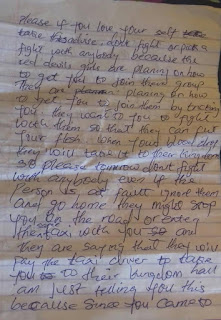 Please if you love your self
take this advice, dont fight or pick a
fight with anybody because the
evil devils girls are planing on how
to get you to join them group
They are planing on how
to get you to join them by tricking
you. they want you to fight
with them so that they can put
your flesh when your blood shed
they will take it to their kingdom
so please tomorrow dont fight
with anybody even if the
person is at fault ignore them
and go home they might stop
you on the road or enter
the taxi with you so and
they are saying that they will
pay the taxi driver to take
you to their kingdom hall
am just telling you this
because since you came to